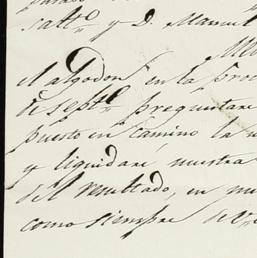 saltº y D. Manuel
el algodon en la proc
de septe preguntare
puesto en camino la
y liquidare nuestra
del resultado, en
como siempre